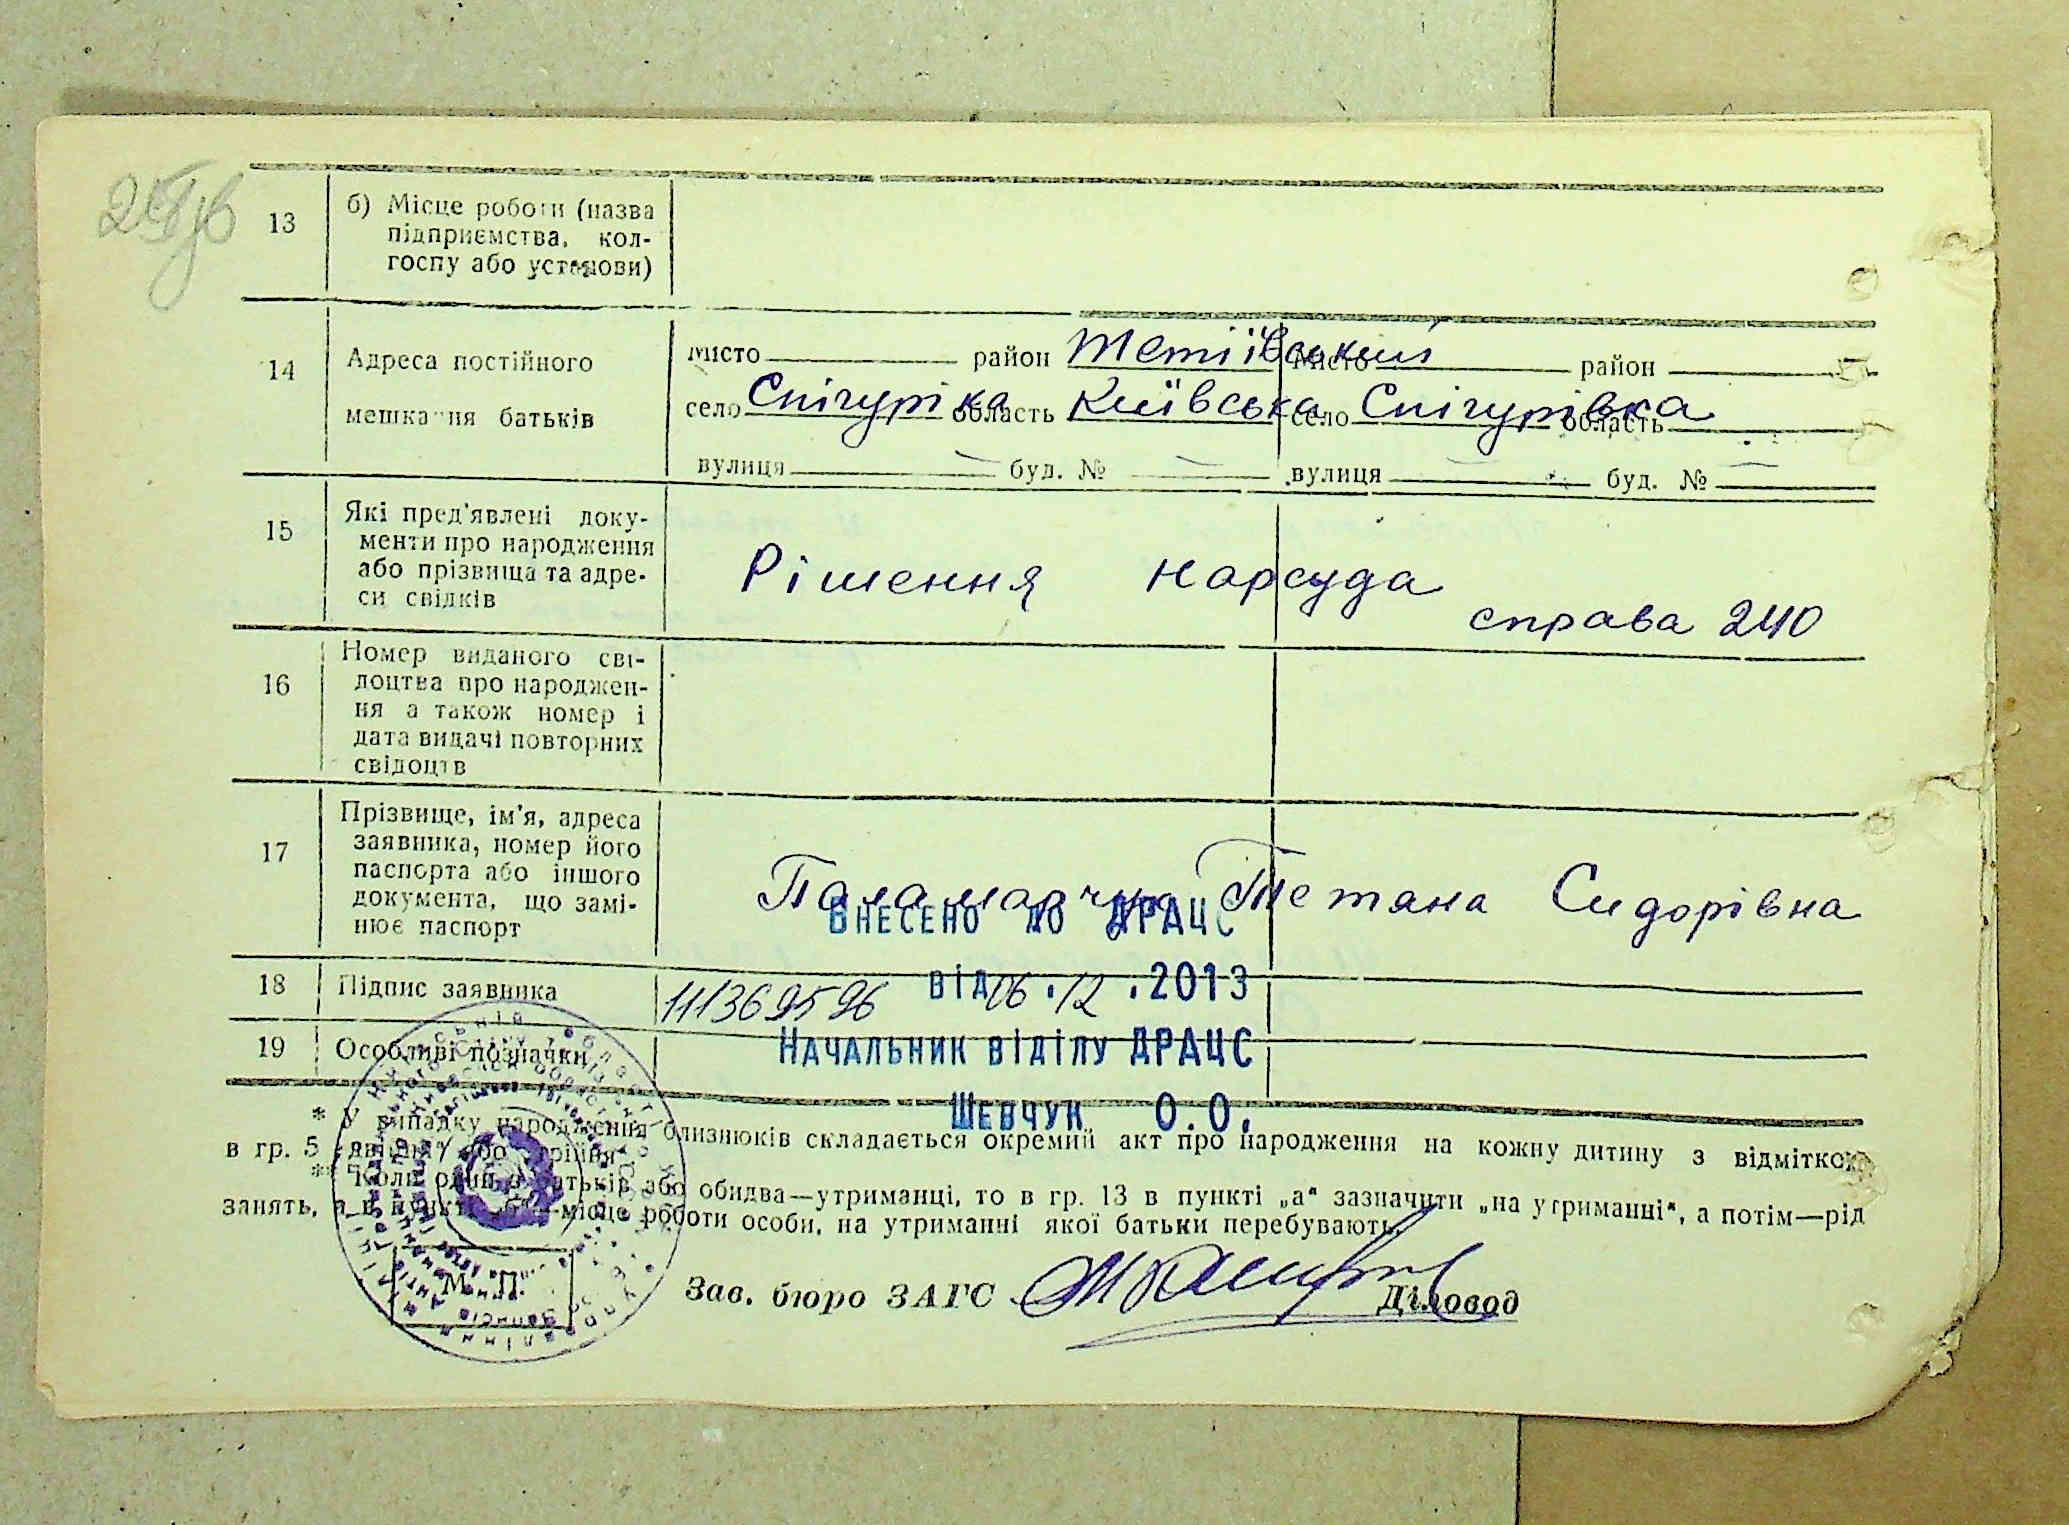 13 б) Місце роботи (назва
підприємства, кол-
госпу або установи)
14 Адреса постійного
мешкання батьків
місто район Тетіївський місто район
село Спігуріка область Київська село Спігурівка область
вулиця — буд. № — вулиця — буд. № —
15 Які пред'явлені доку-
менти про народження
або прізвища та адре-
си свідків
Рішення нарсуда
справа 240
16 Номер виданого сві-
доцтва про народжен-
ня а також номер і
дата видачі повторних
свідоцтв
17 Прізвище, ім'я, адреса
заявника, номер його
паспорта або іншого
документа, що замі-
нює паспорт
Паламарчук Тетяна Сидорівна
Внесено до ДРАЦС
18 Підпис заявника
111369596 від 06.12.2013
19 Особливі позначки
Начальник відділу ДРАЦС
Шевчук О.О.
* У випадку народження близнюків складається окремий акт про народження на кожну дитину з відміткою
в гр. 5 „двійня" або „трійня"
** Коли один з батьків або обидва—утриманці, то в гр. 13 в пункті „а" зазначити „на утриманні", а потім—рід
занять, а в пункті „б"—місце роботи особи, на утриманні якої батьки перебувають.
М. П.
Зав. бюро ЗАГС Діловод